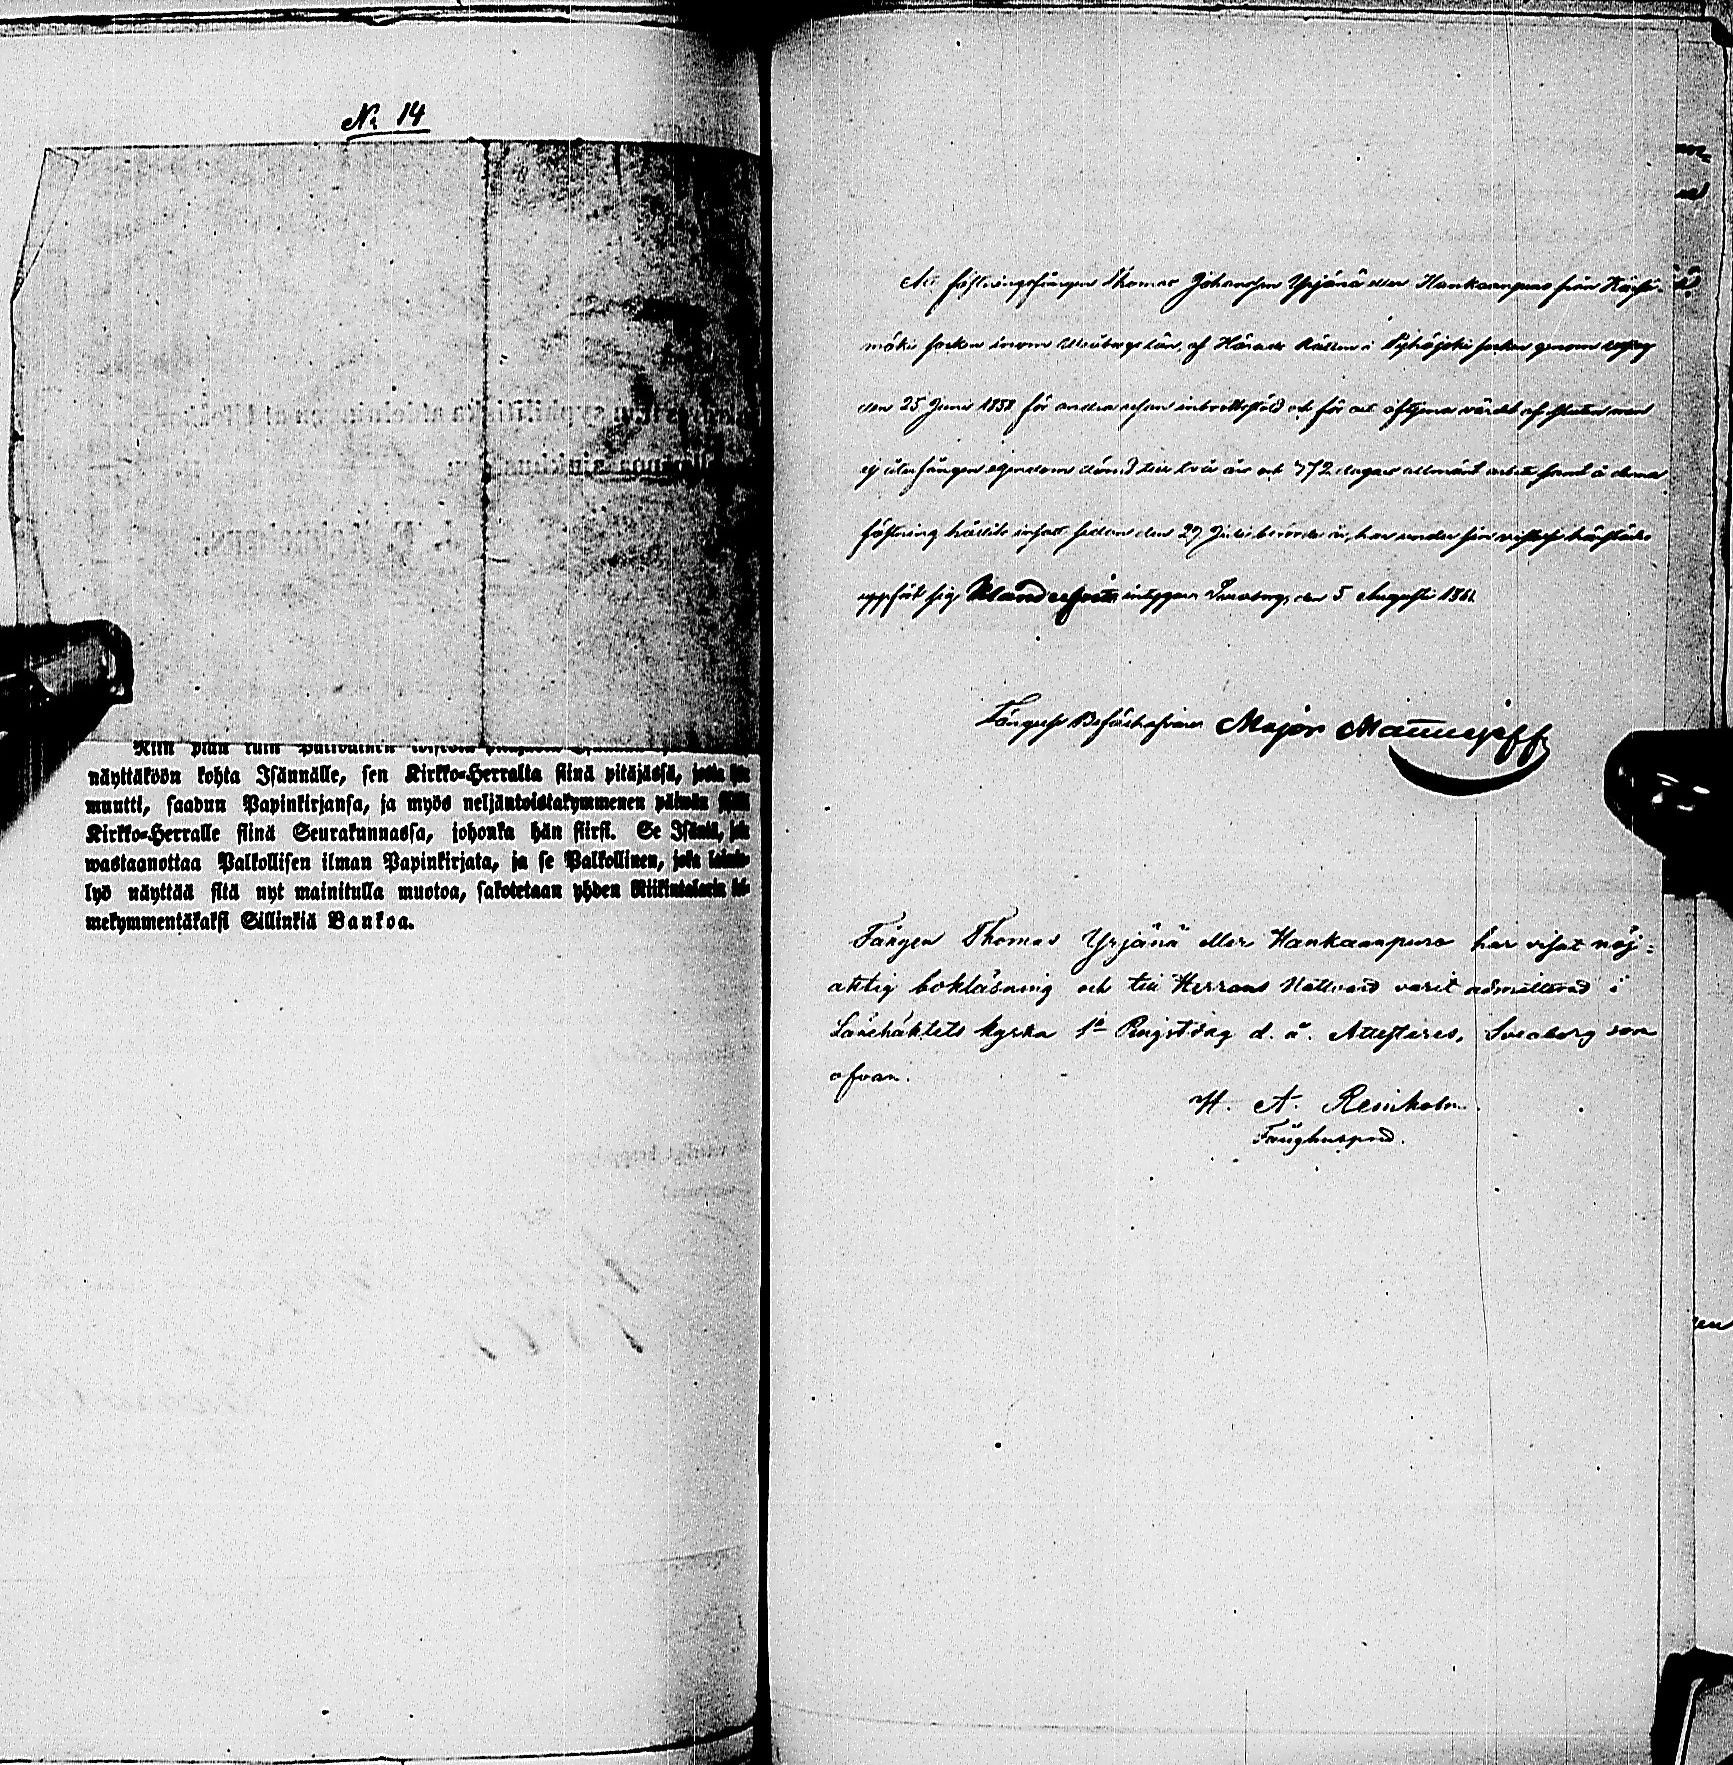 No 14
näyttäköön kohta Isännälle, sen Kirkko-Herralta siinä pitäjässä, josta hän
muutti, saadun Papinkirjansa, ja myös neljäntoistakymmenen päiwän
Kirkko-Herralle siinä Seurakunnassa, johonka hän siirsi. Se Isäntä, joka
wastaanottaa Palkollisen ilman Papinkirjata, ja se Palkollinen, joka laimin-
lyö näyttää sitä nyt mainitulla muotoa, sakotetaan yhden Riikintalerin
mekymmentäkaksi Sillinkiä Bankoa.
Att fästningsfången Thomas Johansson Yrjänä eller Hankaanpuro från Kärsä-
mäki socken inom Uleåborgs län, af Härads Rätten i Pyhäjoki socken genom utslag
den 25 Juni 1858 för andra resan inbrottsstöld och för att aftjena värdet af stulen men
ej återfången egendom dömd till två år och 772 dagars allmänt arbete samt å denna
fästning hållits insatt sedan den 29 Juli berörde år, har under sin vistelse härstädes
uppfört sig Klanderfritt intygar. Sveaborg den 5 Augusti 1861
Fängelse Befälhafvaren Major
Fången Thomas Yrjänä eller Hankaanpuro har visat nöj-
aktig bokläsning och till Herrans Nattvard varit admitterad i
Länehäktets kyrka 1a Pingstdag d. å. Attesteras, Sveaborg som
ofvan.
H. A. Reinholm.
Fånghuspred.